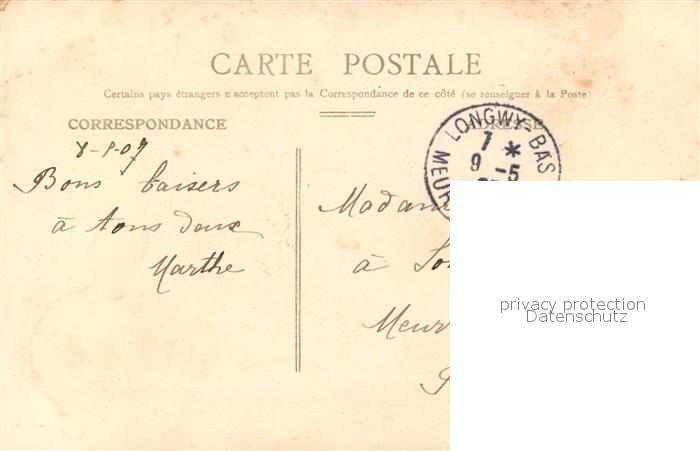 CARTE POSTALE
Certains pays étrangers n'acceptent pas la Correspondance de ce côté (se renseigner à la Poste)
CORRESPONDANCE
ADRESSE
LONGWY-BAS
MEUR
7 *
9 -5
07
Bons baisers
à tous deux
Marthe
Madam
à Lon
Meur
privacy protection
Datenschutz